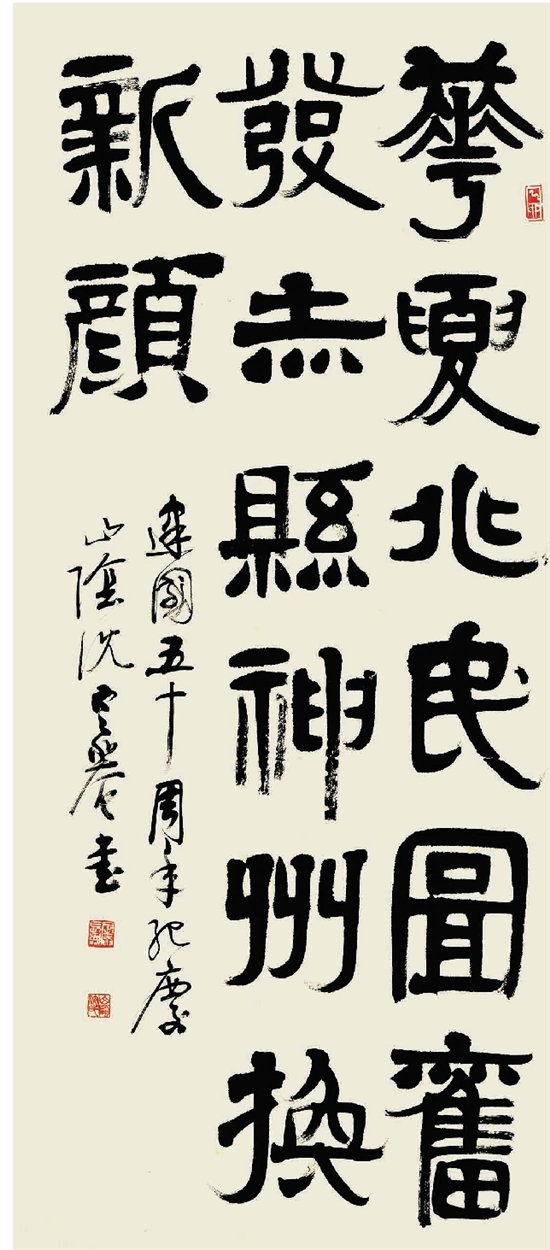 華夏兆民圖奮
發赤縣神州換
新顏
建國五十周年紀慶
山陰沈定庵書